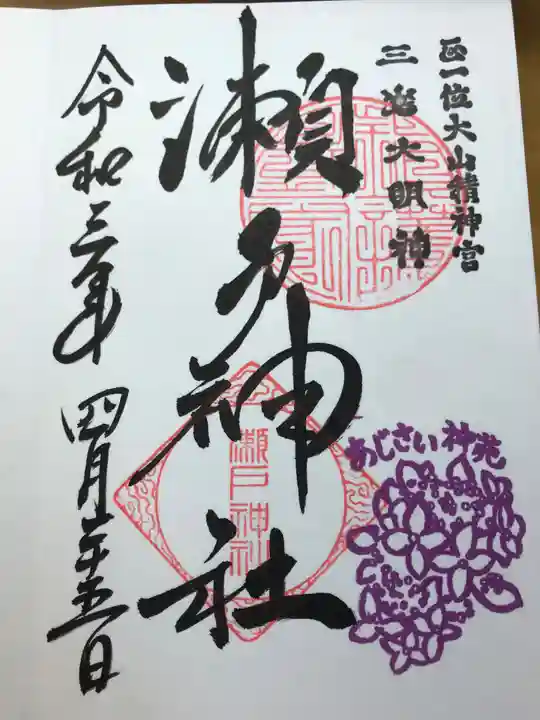 正一位大山積神宮
三島大明神
瀬戸神社
瀬戸神社
令和三年四月二十五日
あじさい神苑